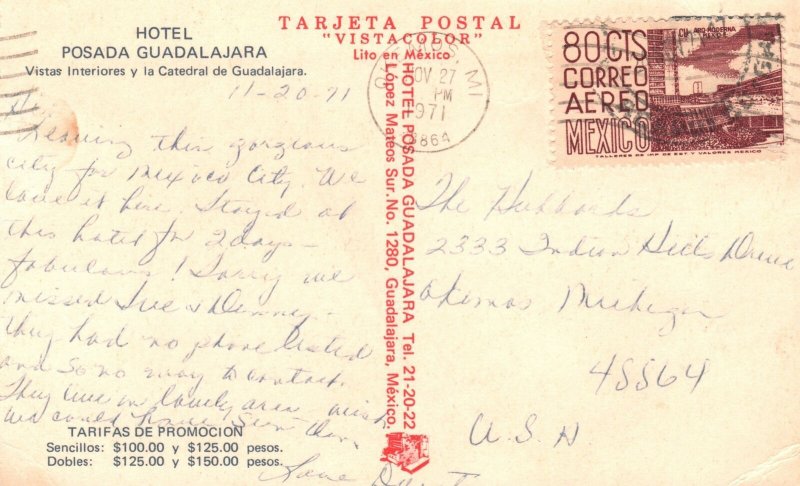 HOTEL
POSADA GUADALAJARA
Vistas Interiores y la Catedral de Guadalajara.
11-20-71
Leaving this gorgeous
city for Mexico City. We
love it here. Stayed at
this hotel for 2 days –
fabulous! Sorry we
missed Sue & Denny –
they had no phone listed
and so no way to contact.
They live in lovely area wish
we could have seen them.
Love
TARIFAS DE PROMOCION
Sencillos: $100.00 y $125.00 pesos.
Dobles: $125.00 y $150.00 pesos.
TARJETA POSTAL
"VISTACOLOR"
Lito en México
HOTEL POSADA GUADALAJARA Tel. 21-20-22
López Mateos Sur. No. 1280, Guadalajara, México.
OKEMOS, MI
NOV 27
PM
1971
48864
80 CTS
CORREO
AEREO
MEXICO
TALLERES DE IMP. DE EST. Y VALORES MEXICO
The Hubbards
2333 Indian Hills Drive
Okemos Michigan
48864
U.S.A